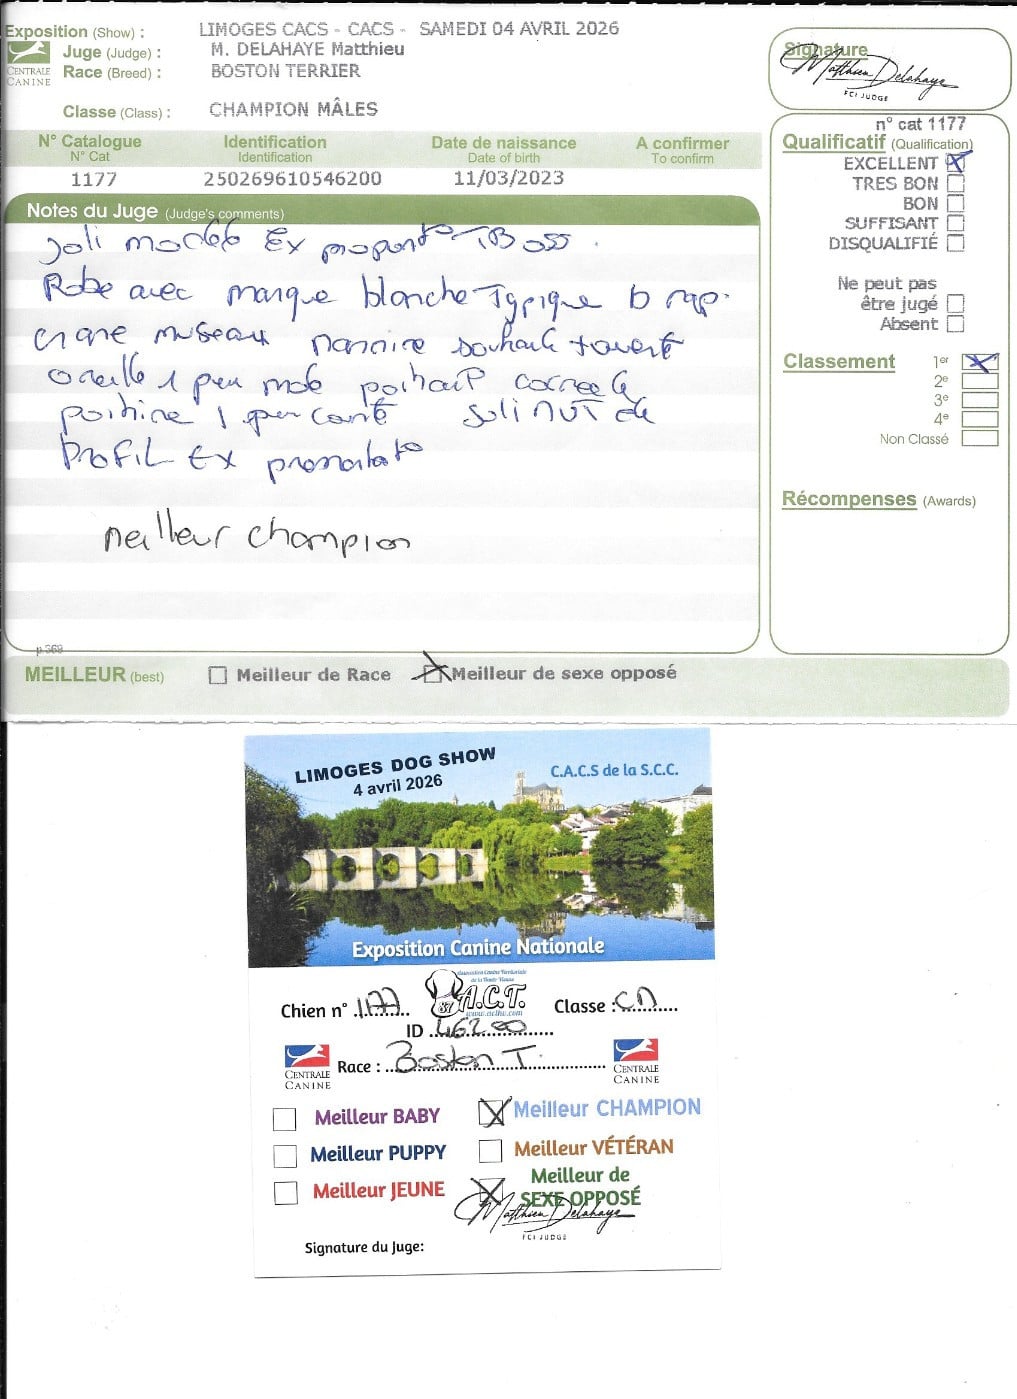 Exposition (Show) : LIMOGES CACS - CACS - SAMEDI 04 AVRIL 2026
Juge (Judge) : M. DELAHAYE Matthieu
Race (Breed) : BOSTON TERRIER
CENTRALE
CANINE
Classe (Class) : CHAMPION MÂLES
Signature
Matthieu Delahaye
FCI JUDGE
N° Catalogue Identification Date de naissance A confirmer
N° Cat Identification Date of birth To confirm
1177 250269610546200 11/03/2023
n° cat 1177
Qualificatif (Qualification)
EXCELLENT
TRES BON
BON
SUFFISANT
DISQUALIFIÉ
Ne peut pas
être jugé
Absent
Classement 1er
2e
3e
4e
Non Classé
Récompenses (Awards)
Notes du Juge (Judge's comments)
Joli modèle Ex proport° TB oss.
Robe avec marque blanche Typique b rap.
crane museau narine souhait
oreille 1 peu mob
poitrine 1 peu
Profil Ex
meilleur champion
p.369
MEILLEUR (best) Meilleur de Race Meilleur de sexe opposé
LIMOGES DOG SHOW
4 avril 2026
C.A.C.S de la S.C.C.
Exposition Canine Nationale
Association Canine Territoriale
de la Haute Vienne
87 A.C.T.
Chien n° 1177 Classe : CA
ID 46200
CENTRALE
CANINE
Race : Boston T.
CENTRALE
CANINE
Meilleur BABY Meilleur CHAMPION
Meilleur PUPPY Meilleur VÉTÉRAN
Meilleur JEUNE Meilleur de
SEXE OPPOSÉ
Matthieu Delahaye
FCI JUDGE
Signature du Juge: